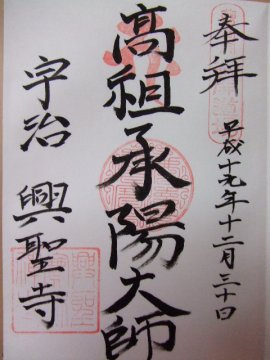 奉拝
平成十九年十二月三十日
高祖承陽大師
宇治 興聖寺